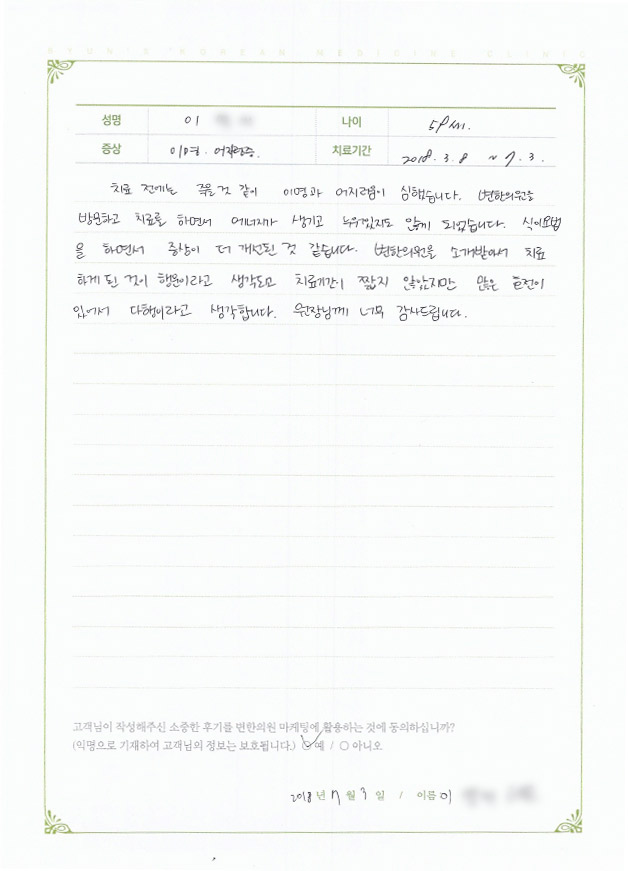 BYUN'S KOREAN MEDICINE CLINIC
성명 이 나이 58세.
증상 이명. 어지럼증. 치료기간 2018. 3. 8 ~ 7. 3.
치료 전에는 죽을 것 같이 이명과 어지러움이 심했습니다. 변한의원을
방문하고 치료를 하면서 에너지가 생기고 누워있지도 않게 되었습니다. 식이요법
을 하면서 증상이 더 개선된 것 같습니다. 변한의원을 소개받아서 치료
하게 된 것이 행운이라고 생각되고 치료기간이 짧지 않았지만 많은 호전이
있어서 다행이라고 생각합니다. 원장님께 너무 감사드립니다.
고객님이 작성해주신 소중한 후기를 변한의원 마케팅에 활용하는 것에 동의하십니까?
(익명으로 기재하여 고객님의 정보는 보호됩니다.) ○ 예 / ○ 아니오
2018 년 7 월 3 일 / 이름 이